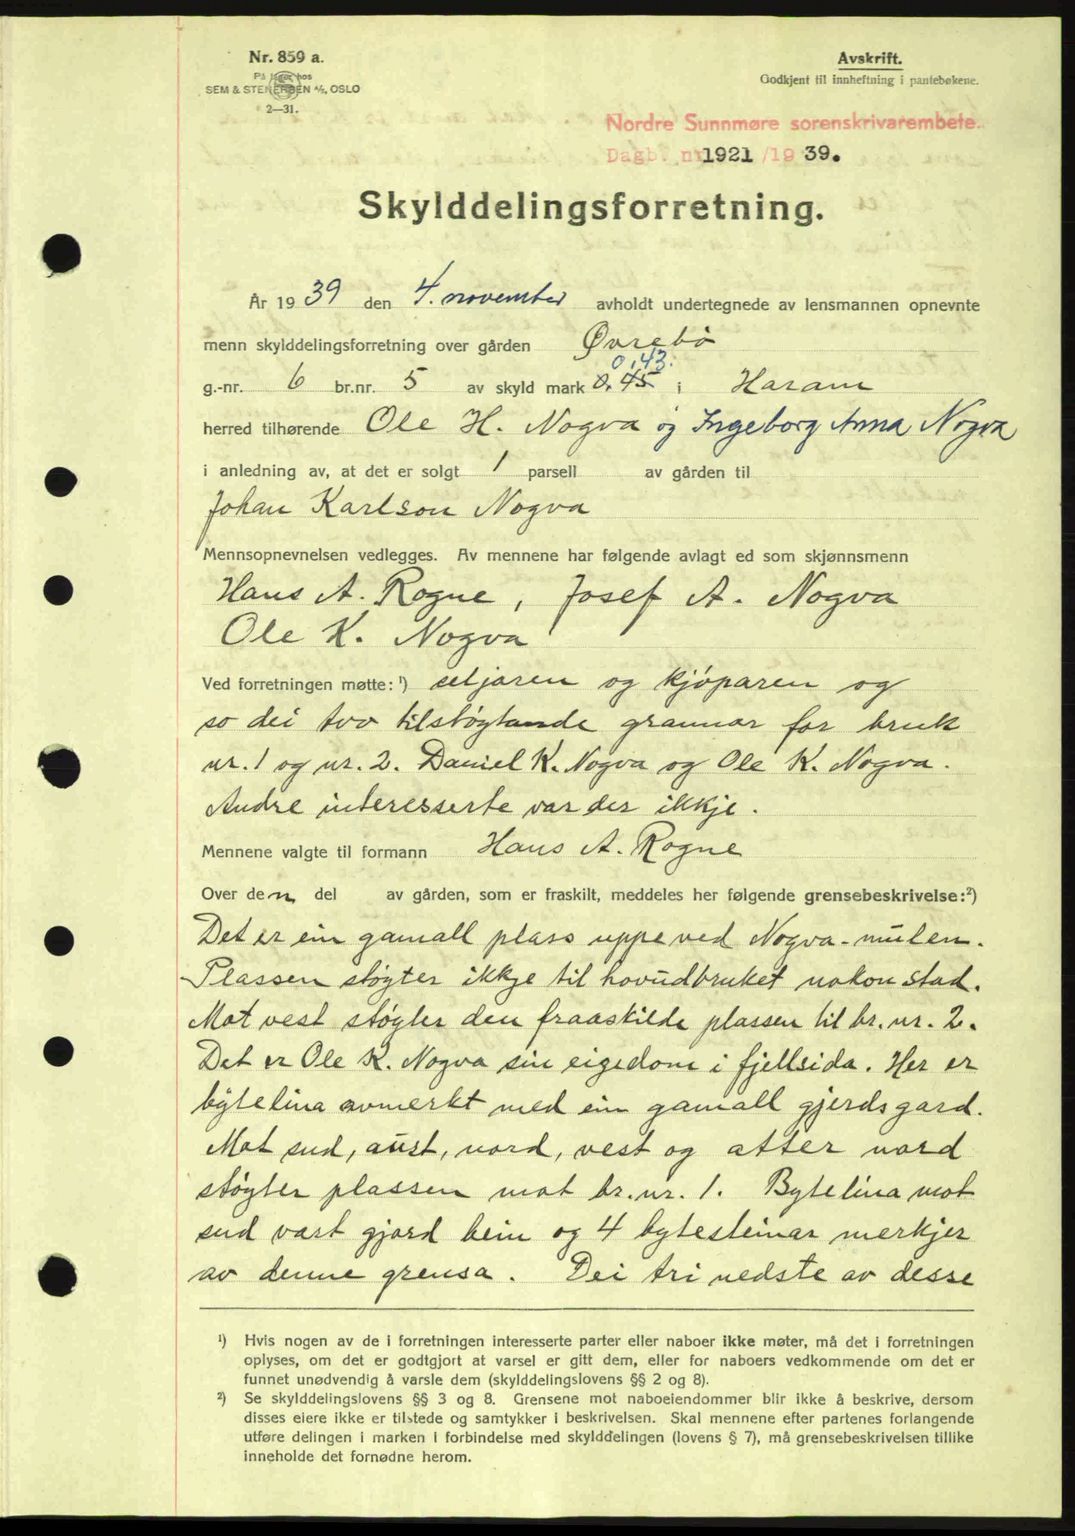 Nr. 859 a.
På lager hos
SEM & STENERSEN A/S, OSLO
2—31.
Avskrift.
Godkjent til innheftning i pantebøkene.
Nordre Sunnmøre sorenskrivarembete.
Dagb. nr 1921 /19 39.
Skylddelingsforretning.
År 19 39 den 4. november avholdt undertegnede av lensmannen opnevnte
menn skylddelingsforretning over gården Øvrebö
0,43.
g.-nr. 6 br.nr. 5 av skyld mark 0,45 i Haram
herred tilhørende Ole H. Nogva og Ingeborg Anna Nogva
i anledning av, at det er solgt 1 parsell av gården til
Johan Karlson Nogva
Mennsopnevnelsen vedlegges. Av mennene har følgende avlagt ed som skjønnsmenn
Hans A. Rogne, Josef A. Nogva
Ole K. Nogva
Ved forretningen møtte: ¹) seljaren og kjöparen og
so dei tvo tilstöytande grannar for bruk
nr. 1 og nr. 2. Daniel K. Nogva og Ole K. Nogva.
Andre interesserte var der ikkje.
Mennene valgte til formann Hans A. Rogne
Over den del av gården, som er fraskilt, meddeles her følgende grensebeskrivelse: ²)
Det er ein gamall plass uppe ved Nogva-mulen.
Plassen stöyter ikkje til hovudbruket nokon stad.
Mot vest stöyter den fraaskilde plassen til br. nr. 2.
Det er Ole K. Nogva sin eigedom i fjellsida. Her er
bytelina avmerkt med ein gamall gjerdsgard.
Mot sud, aust, nord, vest og atter nord
stöyter plassen mot br. nr. 1. Bytelina mot
sud vart gjord bein og 4 bytesteinar merkjer
av denne grensa. Dei tri nedste av desse
¹) Hvis nogen av de i forretningen interesserte parter eller naboer ikke møter, må det i forretningen
oplyses, om det er godtgjort at varsel er gitt dem, eller for naboers vedkommende om det er
funnet unødvendig å varsle dem (skylddelingslovens §§ 2 og 8).
²) Se skylddelingslovens §§ 3 og 8. Grensene mot naboeiendommer blir ikke å beskrive, dersom
disses eiere ikke er tilstede og samtykker i beskrivelsen. Skal mennene efter partenes forlangende
utføre delingen i marken i forbindelse med skylddelingen (lovens § 7), må grensebeskrivelsen tillike
inneholde det fornødne herom.